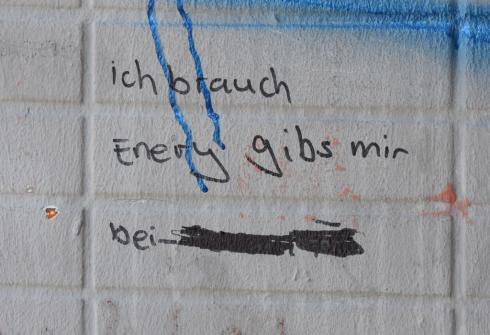 ich brauch
Enery gibs mir
bei